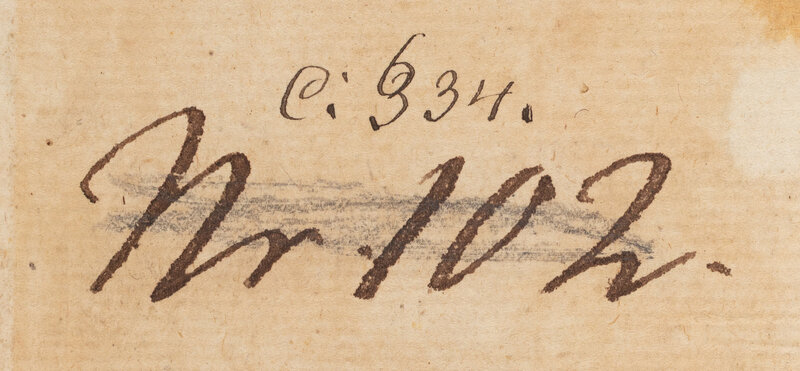 C: 634.
Nr. 102.